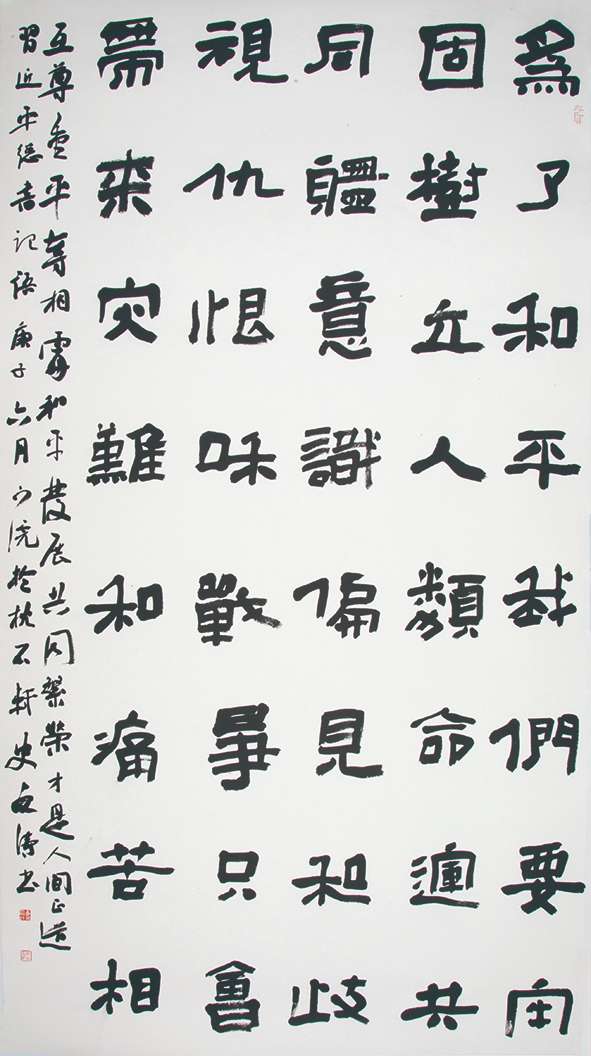 爲了和平我們要牢
固樹立人類命運共
同軆意識偏見和歧
視仇恨和戰爭只會
帶來灾難和痛苦相
互尊重平等相處和平發展共同繁榮才是人間正道
習近平總書記語庚子六月下浣於枕石軒史濤書